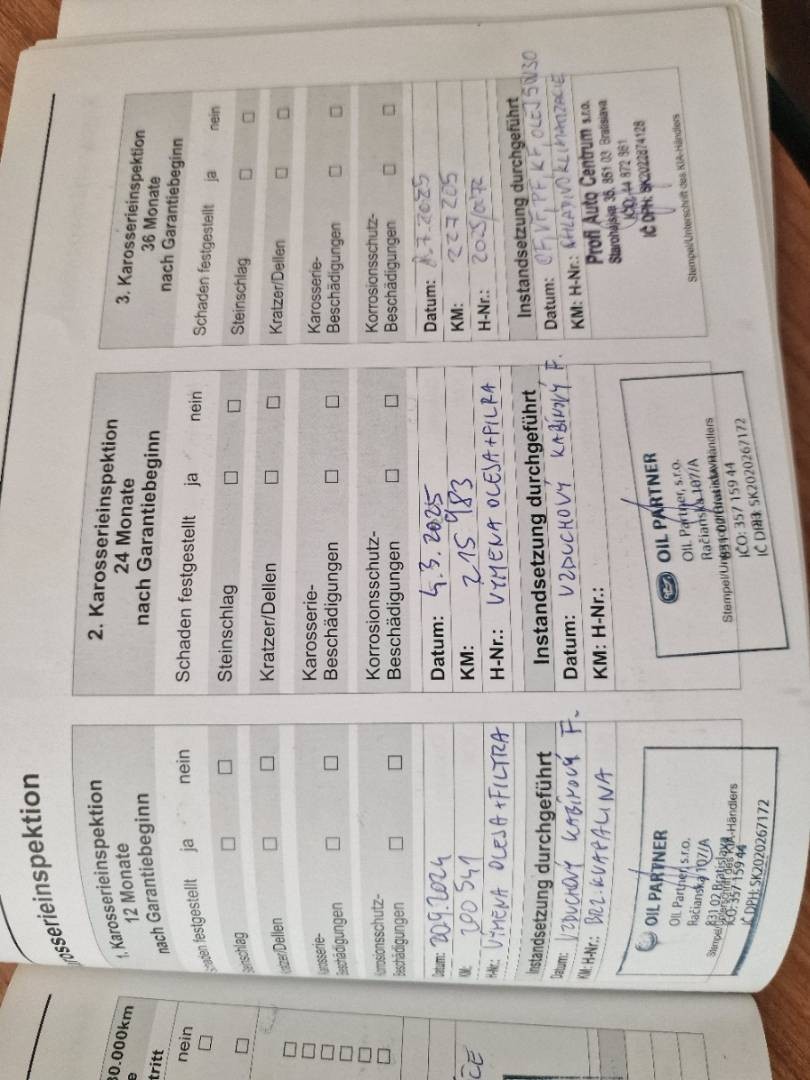 Karosserieinspektion
1. Karosserieinspektion
12 Monate
nach Garantiebeginn
Schaden festgestellt ja nein
Steinschlag
Kratzer/Dellen
Karosserie-
Beschädigungen
Korrosionsschutz-
Beschädigungen
Datum: 20.9.2024
KM: 200 541
H-Nr.: VÝMENA OLEJA+FILTRA
Instandsetzung durchgeführt
Datum: VZDUCHOVÝ KABÍNOVÝ F.
KM: H-Nr.: BRZ. KVAPALINA
OIL PARTNER
OIL Partner, s.r.o.
Račianska 107/A
831 02 Bratislava
Stempel/Unterschrift des KIA-Händlers
IČO: 357 159 44
IČ DPH: SK2020267172
2. Karosserieinspektion
24 Monate
nach Garantiebeginn
Schaden festgestellt ja nein
Steinschlag
Kratzer/Dellen
Karosserie-
Beschädigungen
Korrosionsschutz-
Beschädigungen
Datum: 4.3.2025
KM: 215 983
H-Nr.: VÝMENA OLEJA+FILRA
Instandsetzung durchgeführt
Datum: VZDUCHOVÝ KABÍNOVÝ F.
KM: H-Nr.:
OIL PARTNER
OIL Partner, s.r.o.
Račianska 107/A
831 02 Bratislava
Stempel/Unterschrift des KIA-Händlers
IČO: 357 159 44
IČ DPH: SK2020267172
3. Karosserieinspektion
36 Monate
nach Garantiebeginn
Schaden festgestellt ja nein
Steinschlag
Kratzer/Dellen
Karosserie-
Beschädigungen
Korrosionsschutz-
Beschädigungen
Datum: 8.7.2025
KM: 227 205
H-Nr.: 2025/0172
Instandsetzung durchgeführt
Datum: OF, VF, PF, KF, OLEJ 5W30
KM: H-Nr.: CHLADIVO KLIMATIZÁCIE
Profi Auto Centrum s.r.o.
Starohájska 35, 851 02 Bratislava
IČO: 44 872 961
IČ DPH: SK2022874128
Stempel/Unterschrift des KIA-Händlers
30.000km
nein